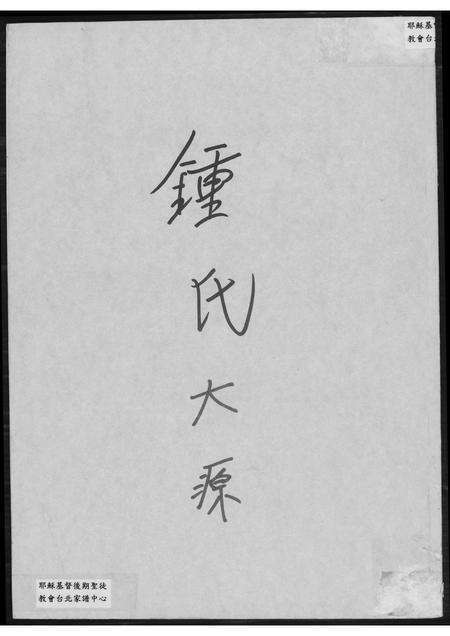 耶穌基
教會台
鍾氏大源
耶穌基督後期聖徒
教會台北家譜中心